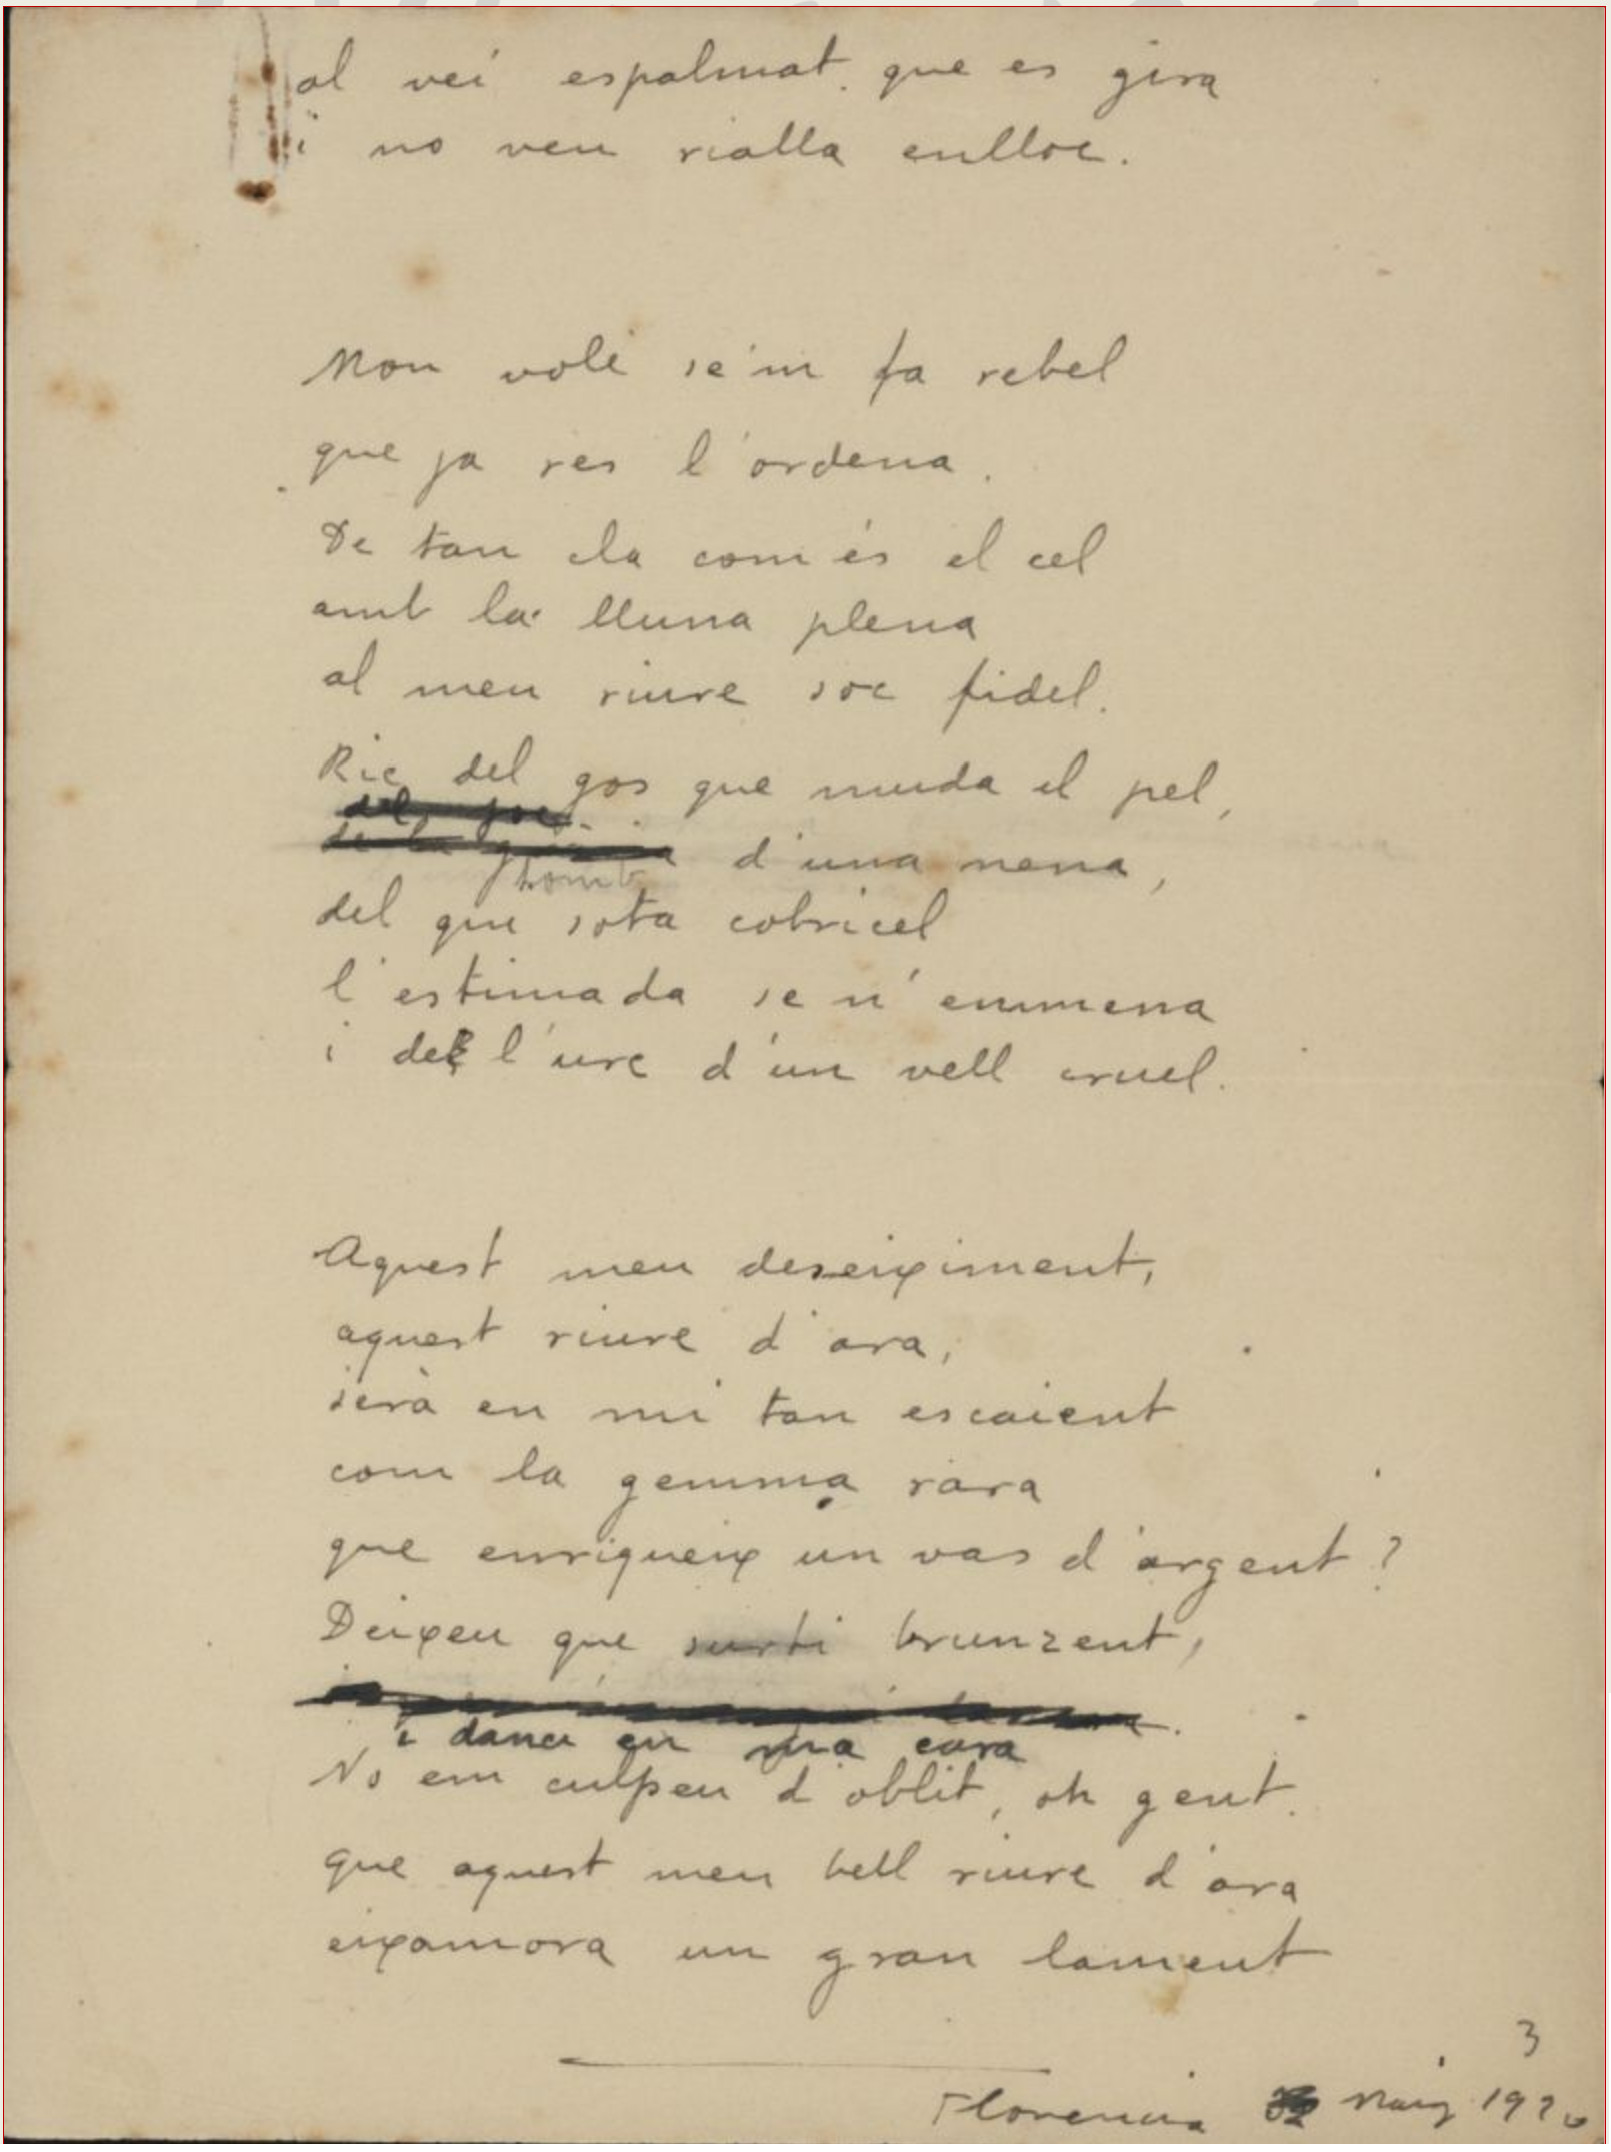 al veí espalmat. que es gira
i no veu rialla enlloc.
Mon volé se'm fa rebel
que ja res l'ordena.
De tan cla com és el cel
amb la lluna plena
al meu riure soc fidel.
Ric del gos que muda el pel,
del joc
de la d'una nena,
del que sota cobricel
l'estimada se n'emmena
i del l'ure d'un vell cruel.
Aquest meu deseiximent,
aquest riure d'ara,
serà en mi tan escaient
com la gemma rara
que enriqueix un vas d'argent?
Deixeu que surti brunzent,
i dança en ma cara
No em culpeu d'oblit, oh gent.
que aquest meu bell riure d'ara
eixamora un gran lament
3
Florencia Maig 1920